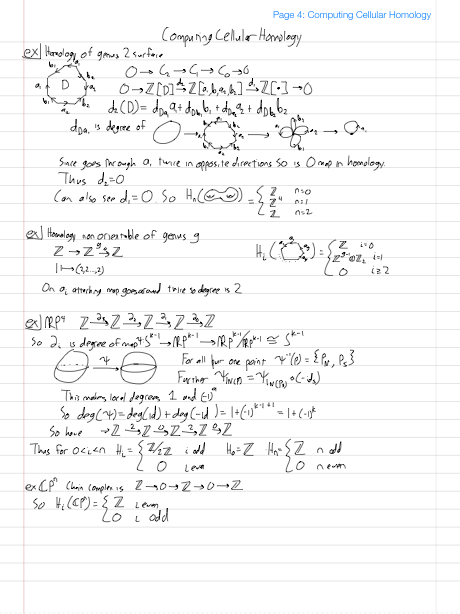 Page 4: Computing Cellular Homology
Computing Cellular Homology
ex Homology of genus 2 surface
0 → C₂ → C₁ → C₀ → 0
0 → ℤ[D] →^{d₂} ℤ[a₁b₁a₂b₂] →^{d₁} ℤ[•] → 0
d₂(D) = d_{Da₁}a₁ + d_{Db₁}b₁ + d_{Da₂}a₂ + d_{Db₂}b₂
d_{Da₁} is degree of
Since goes through a₁ twice in opposite directions so is 0 map in homology.
Thus d₂=0
Can also see d₁=0. So Hₙ( ) = { ℤ n=0
ℤ⁴ n=1
ℤ n=2
ex Homology nonorientable of genus g
ℤ → ℤ^g →^0 ℤ
1 ↦ (2,2...,2)
Hᵢ( ) = { ℤ i=0
ℤ^{g-1}⊕ℤ₂ i=1
0 i≥2
On aᵢ attaching map goes around twice so degree is 2
ex ℝP⁴ ℤ →^{∂₄} ℤ →^{∂₃} ℤ →^{∂₂} ℤ →^{∂₁} ℤ
So ∂ᵢ is degree of map Ψ: S^{k-1} → ℝP^{k-1} → ℝP^{k-1}/ℝP^{k-2} ≅ S^{k-1}
Ψ
For all but one point Ψ⁻¹(p) = {P_N, P_S}
Further Ψ|_{N(P_S)} = Ψ|_{N(P_N)} ∘ (-id)
This makes local degrees 1 and (-1)^k
So deg(Ψ) = deg(id) + deg(-id) = 1+(-1)^{k-1+1} = 1+(-1)^k
So have → ℤ →^2 ℤ →^0 ℤ →^2 ℤ →^0 ℤ
Thus for 0<i<n Hᵢ = { ℤ/2ℤ i odd H₀=ℤ Hₙ = { ℤ n odd
0 i even 0 n even
ex ℂPⁿ Chain complex is ℤ → 0 → ℤ → 0 → ℤ
So Hᵢ(ℂPⁿ) = { ℤ i even
0 i odd